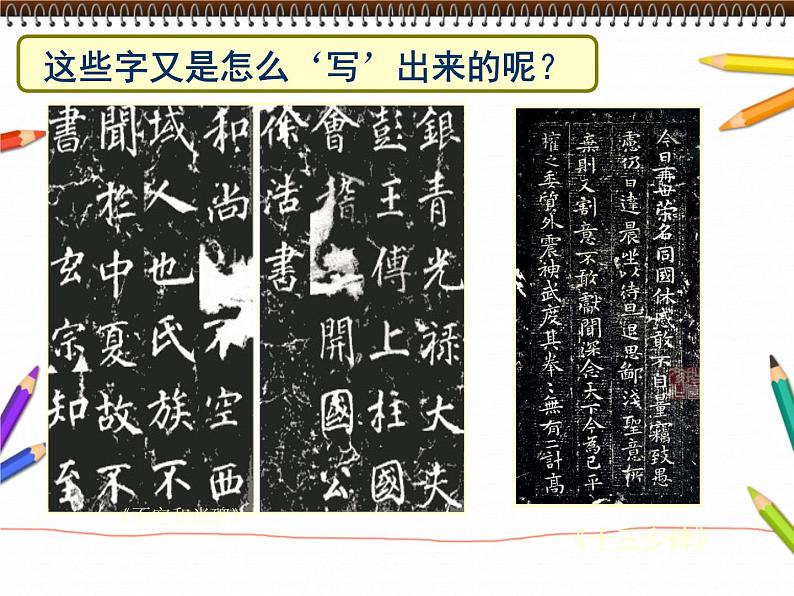 这些字又是怎么‘写’出来的呢？
銀青光祿大夫
彭王傅上柱國
會稽開國公
徐浩書
和尚不空西
域人也氏族不
聞於中夏故不
書玄宗知至
《不空和尚碑》
今日再世榮名同國休慼敢不自量竊致愚
慮仍日達晨坐以待旦退思鄙淺聖意所
棄則又割意不敢獻聞深念天下今為已平
權之委質外震神武度其拳〻無有二計高